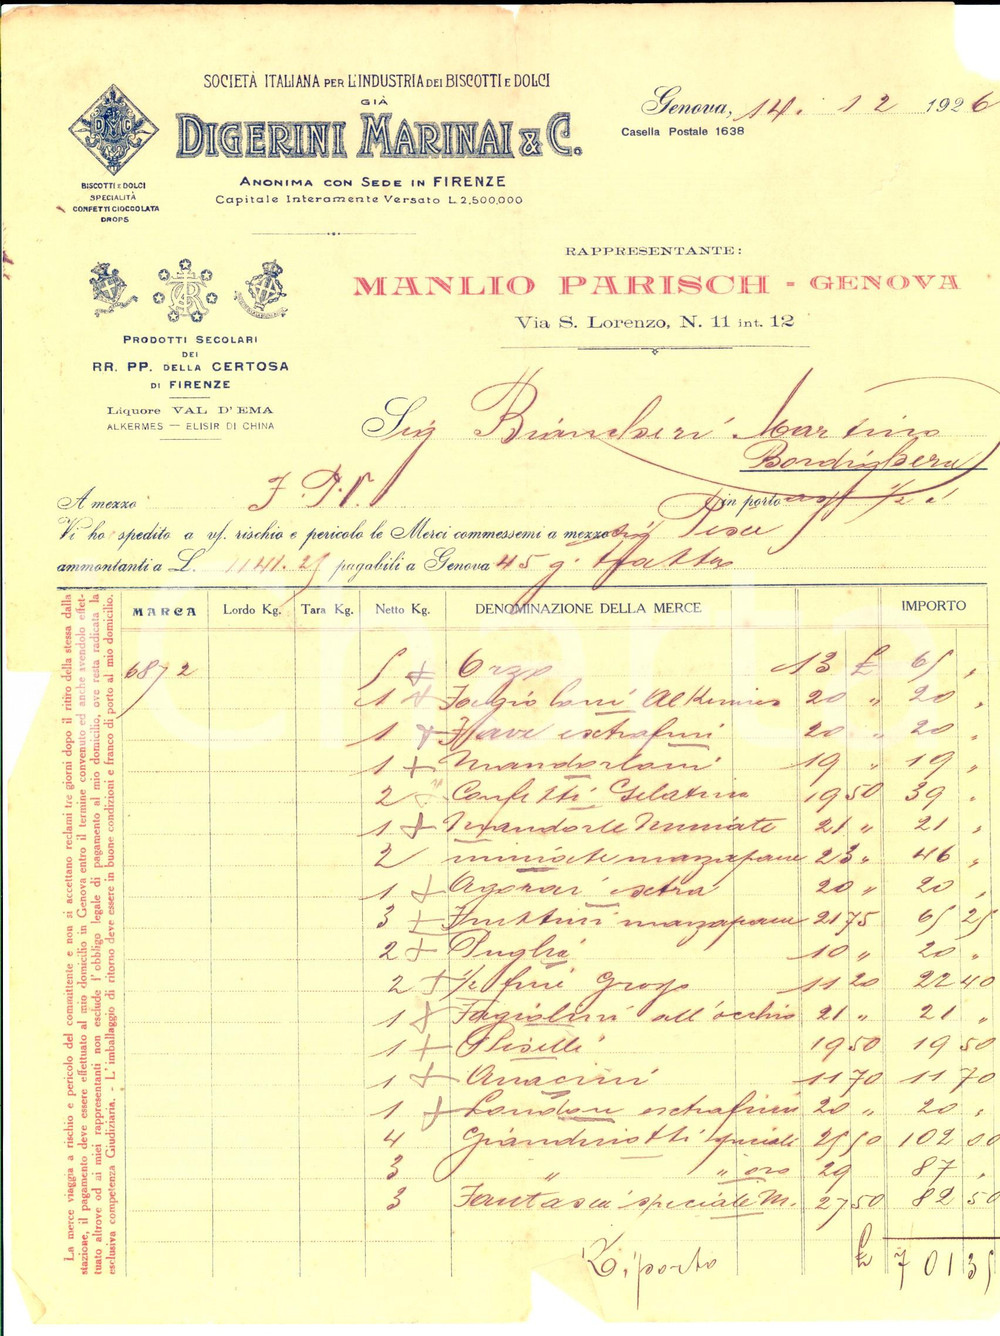 SOCIETÀ ITALIANA PER L'INDUSTRIA DEI BISCOTTI E DOLCI
GIÀ
DIGERINI MARINAI & C.
ANONIMA CON SEDE IN FIRENZE
Capitale Interamente Versato L. 2,500,000
DMC
BISCOTTI E DOLCI
SPECIALITÀ
CONFETTI CIOCCOLATA
DROPS
Genova, 14. 12 1926
Casella Postale 1638
RAPPRESENTANTE:
MANLIO PARISCH - GENOVA
Via S. Lorenzo, N. 11 int. 12
PRODOTTI SECOLARI
DEI
RR. PP. DELLA CERTOSA
DI FIRENZE
Liquore VAL D'EMA
ALKERMES — ELISIR DI CHINA
Sig Biancheri Martino
Bordighera
A mezzo in porto
Vi ho spedito a vs. rischio e pericolo le Merci commessemi a mezzo sig Pesce
ammontanti a L. 1141.25 pagabili a Genova 45 g. tratta
MARCA Lordo Kg. Tara Kg. Netto Kg. DENOMINAZIONE DELLA MERCE IMPORTO
6872 5 Orzo 13 £ 65 "
1 Fagiolini Alkermes 20 " 20 "
1 Fave extrafini 20 " 20 "
1 Mandorloni 19 " 19 "
2 Confetti Gelatina 19 50 39 "
1 Mandorle Miniate 21 " 21 "
2 miniate marzapane 23 " 46 "
1 Agorai extra 20 " 20 "
3 Fruttini marzapane 21 75 65 25
2 Puglia 10 " 20 "
2 1/2 fini Grogo 11 20 22 40
1 Fagiolini all'occhio 21 " 21 "
1 Piselli 19 50 19 50
1 Anacini 11 70 11 70
1 London extrafini 20 " 20 "
4 Gianduiotti speciale 25 50 102 00
3 " " oro 29 87 "
3 Fantasia speciale M. 27 50 82 50
Riporto £ 701 35
La merce viaggia a rischio e pericolo del committente e non si accettano reclami tre giorni dopo il ritiro della stessa dalla
stazione, il pagamento deve essere effettuato al mio domicilio in Genova entro il termine convenuto ed anche avendolo effet-
tuato altrove od ai miei rappresentanti non esclude l'obbligo legale di pagamento al mio domicilio, ove resta radicata la
esclusiva competenza Giudiziaria. - L'imballaggio di ritorno deve essere in buone condizioni e franco di porto al mio domicilio.